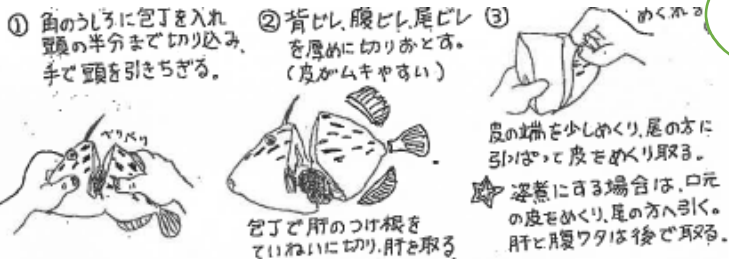 ① 角のうしろに包丁を入れ
頭の半分まで切り込み、
手で頭を引きちぎる。
ベリベリ
② 背ビレ、腹ビレ、尾ビレ
を厚めに切りおとす。
(皮がムキやすい)
包丁で肝のつけ根を
ていねいに切り、肝を取る
③
めくれる
皮の端を少しめくり、尾の方に
引っぱって皮をめくり取る。
姿煮にする場合は、口元
の皮をめくり、尾の方へ引く。
肝と腹ワタは後で取る。